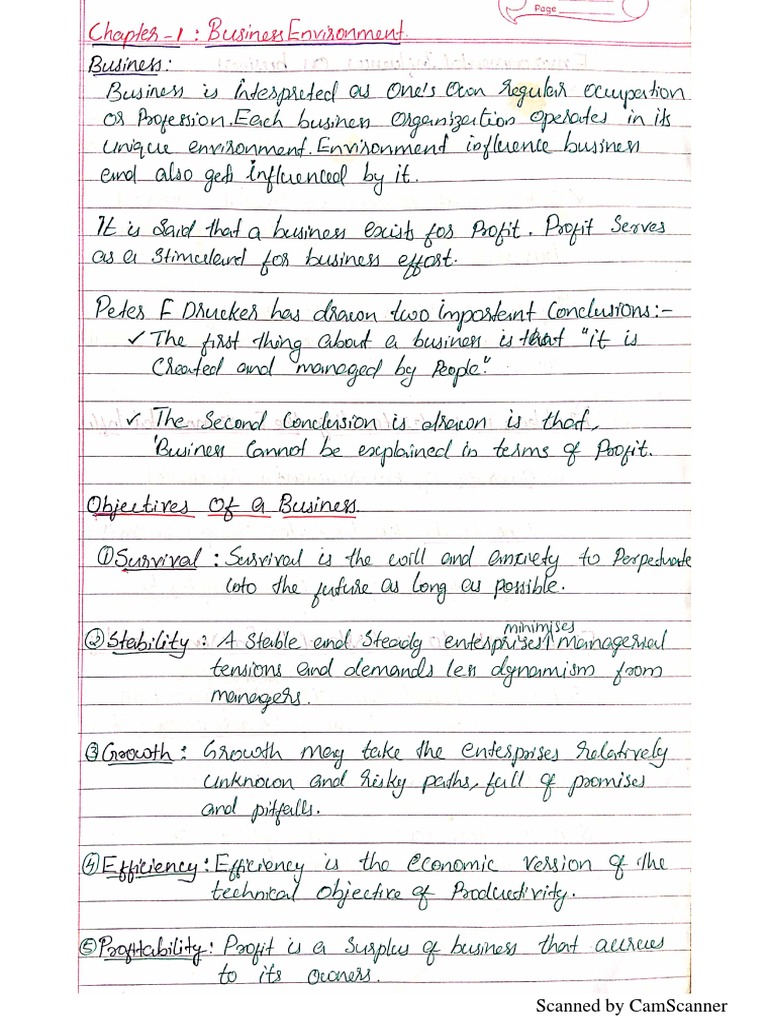 Page
Chapter-1 : Business Environment.
Business:
Business is Interpreted as One's Own regular occupation
or Profession. Each business organization operates in its
unique environment. Environment influence business
and also gets influenced by it.
It is Said that a business exists for Profit. Profit Serves
as a Stimuland for business effort.
Peter F Drucker has drawn two important Conclusions:-
✓ The first thing about a business is that "it is
Created and managed by People."
✓ The Second Conclusion is drawn is that,
'Business Cannot be explained in terms of Profit.
Objectives Of a Business.
① Survival : Survival is the will and anxiety to Perpetuate
into the future as long as possible.
minimises
② Stability : A Stable and Steady enterprises managerial
tensions and demands less dynamism from
managers.
③ Growth : Growth may take the enterprises relatively
unknown and risky paths, full of promises
and pitfalls.
④ Efficiency : Efficiency is the economic version of the
technical objective of Productivity.
⑤ Profitability : Profit is a Surplus of business that accrues
to its Owners.
Scanned by CamScanner